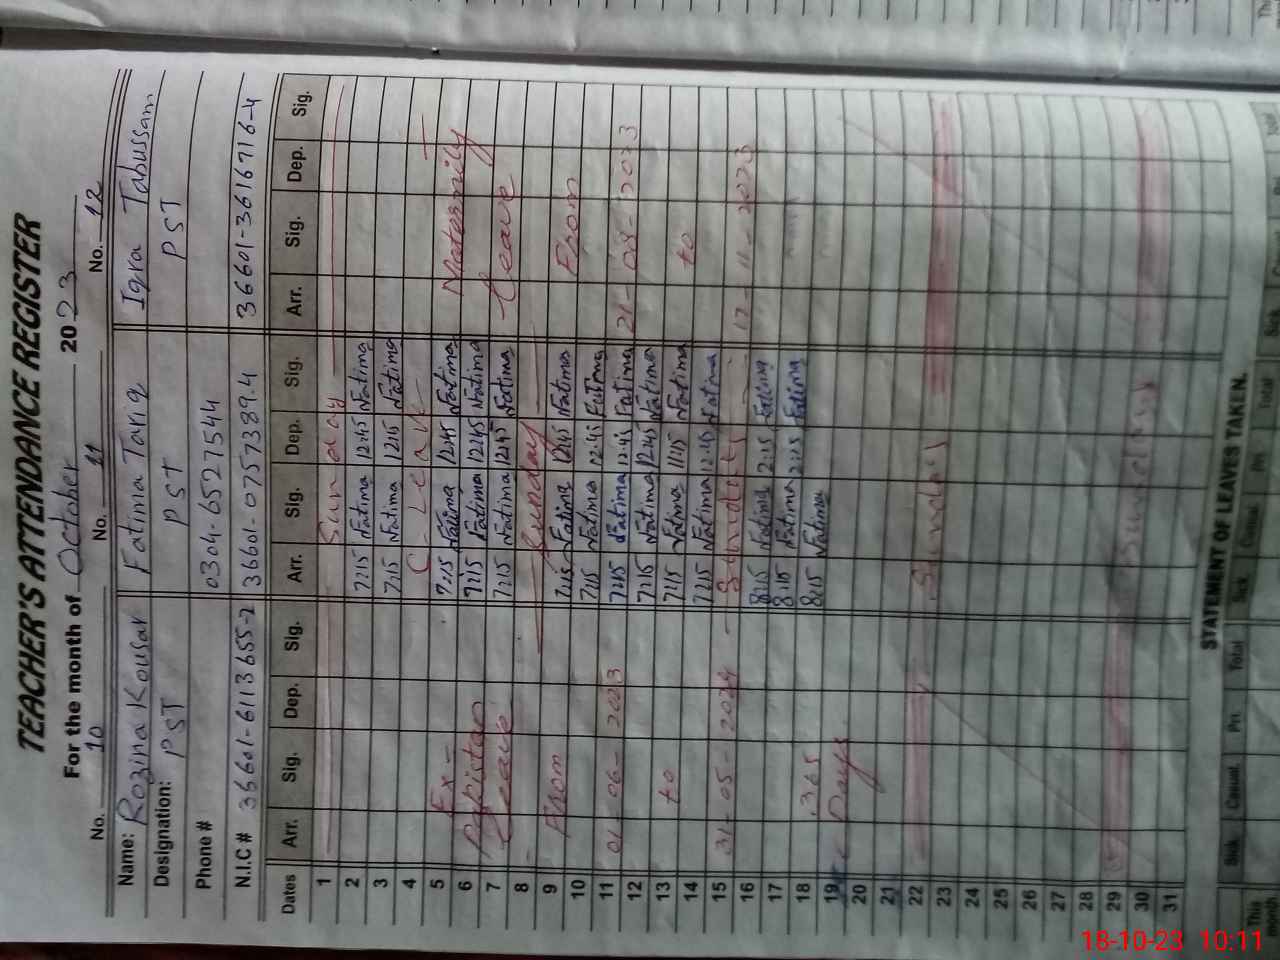 TEACHER'S ATTENDANCE REGISTER
For the month of October 2023
No. 10 No. 11 No. 12
Name: Rozina Kousar Fatima Tariq Iqra Tabussam
Designation: PST PST PST
Phone # 0304-6527544
N.I.C # 36601-6113655-2 36601-0757389.4 36601-3616716-4
Dates Arr. Sig. Dep. Sig. Arr. Sig. Dep. Sig. Arr. Sig. Dep. Sig.
1 Sunday
2 7:15 Fatima 12:45 Fatima
3 7:15 Fatima 12:15 Fatima
4 C-Leave
5 Ex- 7:15 Fatima 12:45 Fatima Maternity
6 Pakistan 7:15 Fatima 12:45 Fatima
7 Leave 7:15 Fatima 12:45 Fatima Leave
8 Sunday
9 From 7:15 Fatima 12:45 Fatima From
10 7:15 Fatima 12:45 Fatima
11 01-06-2023 7:15 Fatima 12:45 Fatima 21-08-2023
12 7:15 Fatima 12:45 Fatima
13 to 7:15 Fatima 11:15 Fatima to
14 7:15 Fatima 12:45 Fatima
15 31-05-2024 Sunday 17-11-2023
16 8:15 Fatima 2:15 Fatima
17 8:15 Fatima 2:15 Fatima
18 365 8:15 Fatima
19 Days
20
21
22 Sunday
23
24
25
26
27
28
29 Sunday
30
31
STATEMENT OF LEAVES TAKEN.
Sick Casual Pri Total Sick Casual Pri Total
This month
18-10-23 10:11